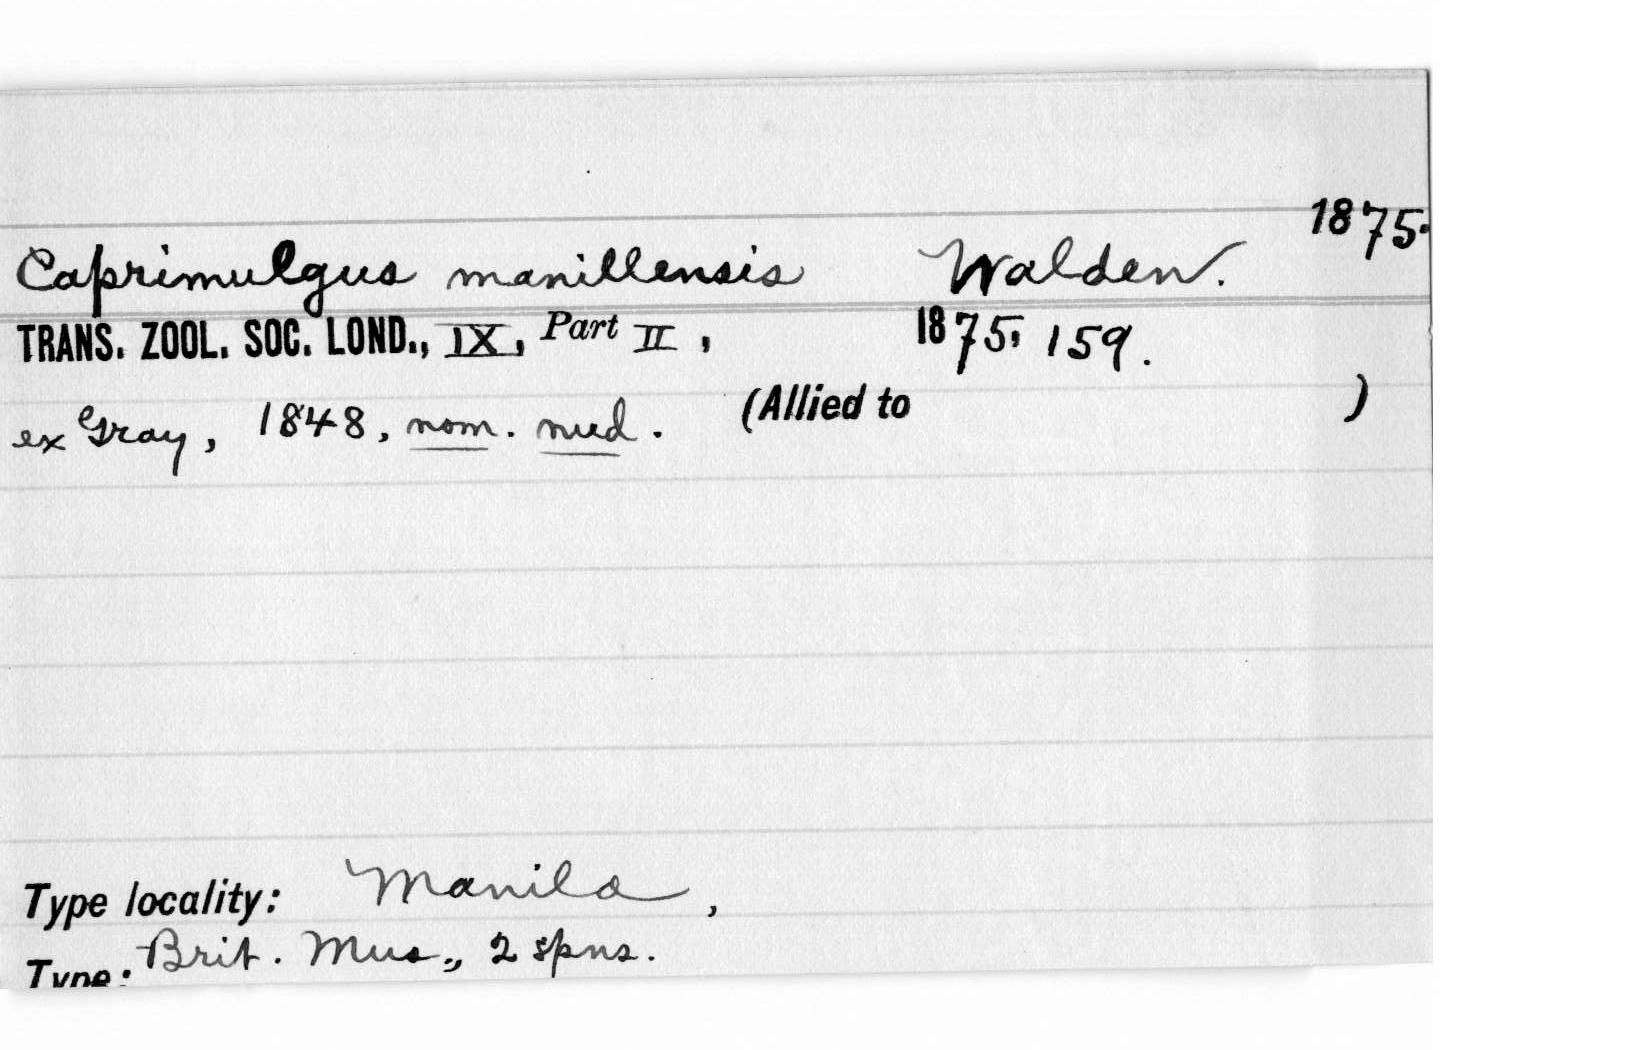 1875.
Caprimulgus manillensis Walden.
TRANS. ZOOL. SOC. LOND., IX, Part II, 1875, 159.
ex Gray, 1848, nom. nud. (Allied to )
Type locality: Manila,
Type: Brit. Mus., 2 spns.